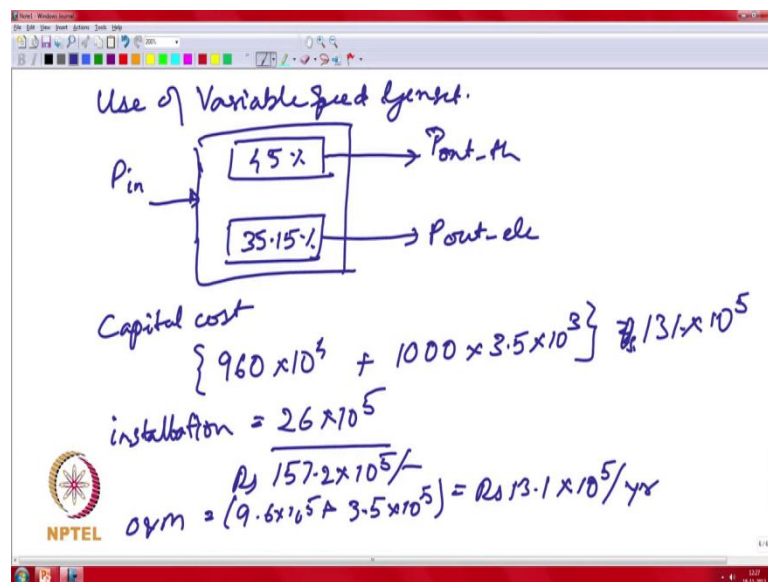 Note1 - Windows Journal
File Edit View Insert Actions Tools Help
200%
B I
Use of Variable Speed Genset.
Pin
45%
Pout-th
35.15%
Pout-ele
Capital cost
{ 960 × 10⁴ + 1000 × 3.5 × 10³ } Rs 131 × 10⁵
installation = 26 × 10⁵
Rs 157.2 × 10⁵/-
O&M = (9.6 × 10⁵ + 3.5 × 10⁵) = Rs 13.1 × 10⁵/yr
NPTEL
6/6
12:27